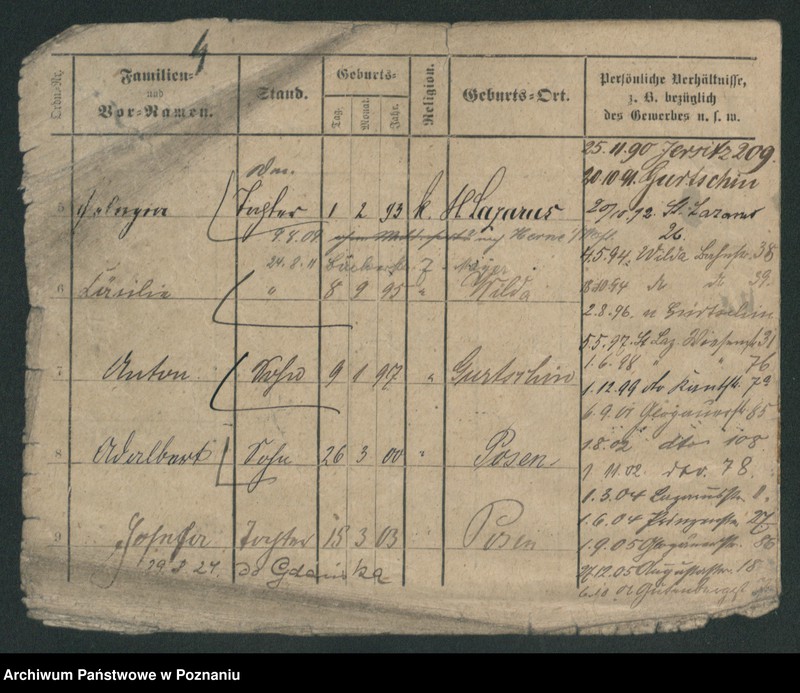 4
Ordn.-Nr.
Familien-
und
Vor-Namen.
Stand.
Geburts-
Tag.
Monat.
Jahr.
Religion.
Geburts-Ort.
Persönliche Verhältnisse,
z. B. bezüglich
des Gewerbes u. s. w.
25.11.90 Jersitz 209.
20.10.91. Gurtschin
5 Tochter 1 2 93 k. St Lazarus
20/10.92. St. Lazarus
26.
9.8.09 nach Herne
4.5.94. Wilda 38
24.8.11
6 Cäcilie " 8 9 95 " Wilda
39.
2.8.96. Gurtschin
5.5.97. St Laz. 31
1.6.98 " " 76
7 Anton Sohn 9 1 97 " Gurtschin
1.12.99 dto Kantstr. 72
6.9.01 Glogauerstr 85
1.8.02 dto 108
8 Adalbert Sohn 26 3 00 " Posen
1 11.02. dto. 78.
1.3.04 Lazarusstr. 11.
1.6.04 Prinzenstr. 27
9 Josefa Tochter 15 3 03 Posen
1.9.05 Glogauerstr. 86
29.3.27 do Gdańska
27.12.05 Augustastr. 18
Gutenbergst
Archiwum Państwowe w Poznaniu